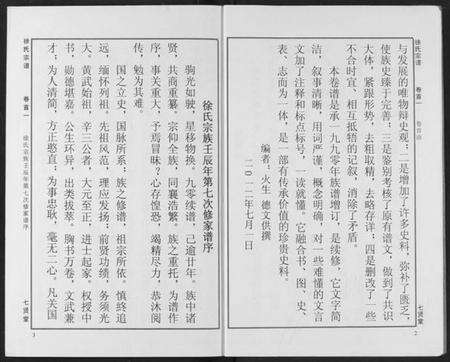 徐氏宗谱
卷首一
卷首语
与发展的唯物辩史观;二是增加了许多史料,弥补了匮乏,
使族史臻于完善;三是鉴别考核了原有谱文,做到了共识
大体,紧跟形势,去粗取精,去略存详,四是删改了一些
不合时宜、相互抵牾的记叙,消除了矛盾。
本卷谱是承一九九零年族谱增订,是续修,它文字简
洁,叙事清晰,用词严谨,概念明确,对一些难懂的文言
文加了注释和标点标号,一读就懂。它融合书、图、史、
表、志而为一体,是一部有传承价值的珍贵史料。
编者:火生 德文供撰
二〇一二年七月一日
七贤堂
2
徐氏宗谱
卷首一
徐氏宗族壬辰年第七次修家谱序
徐氏宗族壬辰年第七次修家谱序
驹光如驶,星移物换。九零续谱,已逾廿年。族中诸
贤,共商重纂。宗仰全族,同襄浩繁。族之重托,为谱作
序,事关重大,予焉冒昧?心存惶恐,竭精尽力,恭沐阅
传,勉为其难。
国之立史,国脉所系;族之修谱,祖宗所依。慎终追
远,缅怀列祖。先祖风范,理应发扬;前贤功绩,务须光
大。黄武始祖,辛三公者,大元至正,进士起家。权授中
书,勋德堪嘉。公生环异,出类拔萃。胸书万卷,文武兼
才;为人清简,方正憨直;为事忠耿,毫无二心。凡关国
七贤堂
3